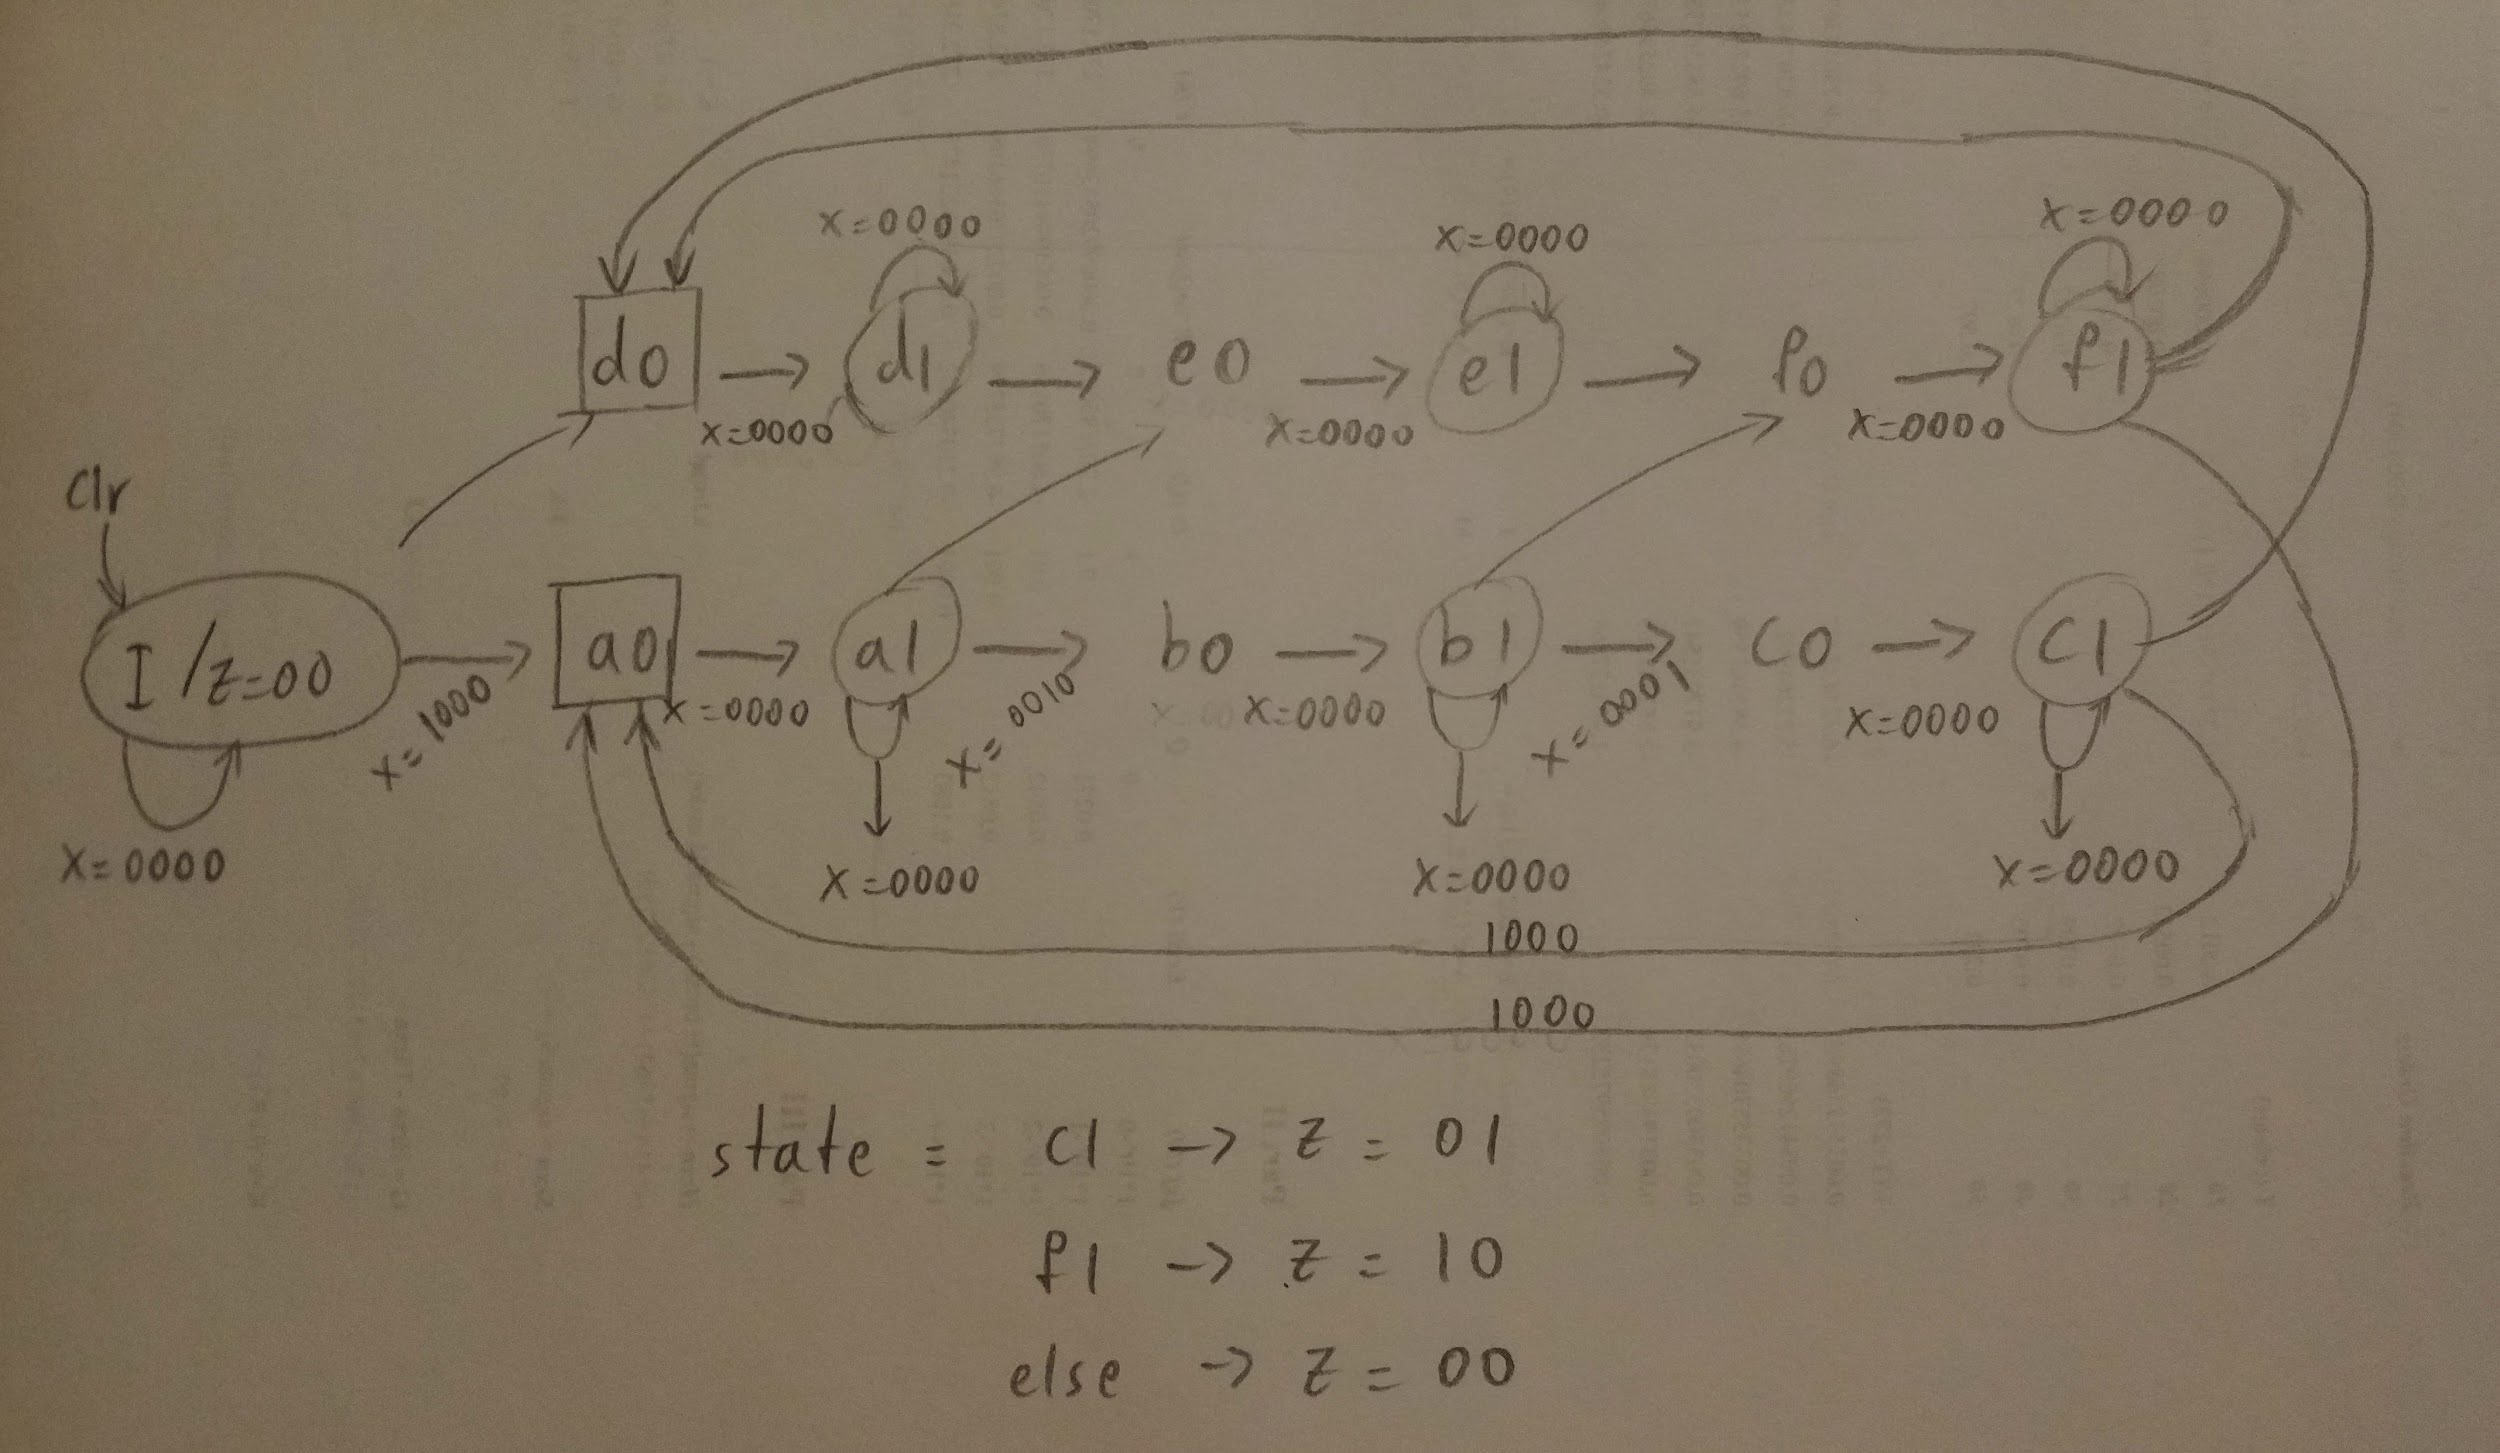 X=0000
X=0000
X=0000
d0
d1
e0
e1
f0
f1
X=0000
X=0000
X=0000
Clr
I/Z=00
a0
a1
b0
b1
C0
C1
X=1000
X=0000
X=0010
X=0000
X=0001
X=0000
X=0000
X=0000
X=0000
X=0000
1000
1000
state = C1 → Z = 01
f1 → Z = 10
else → Z = 00